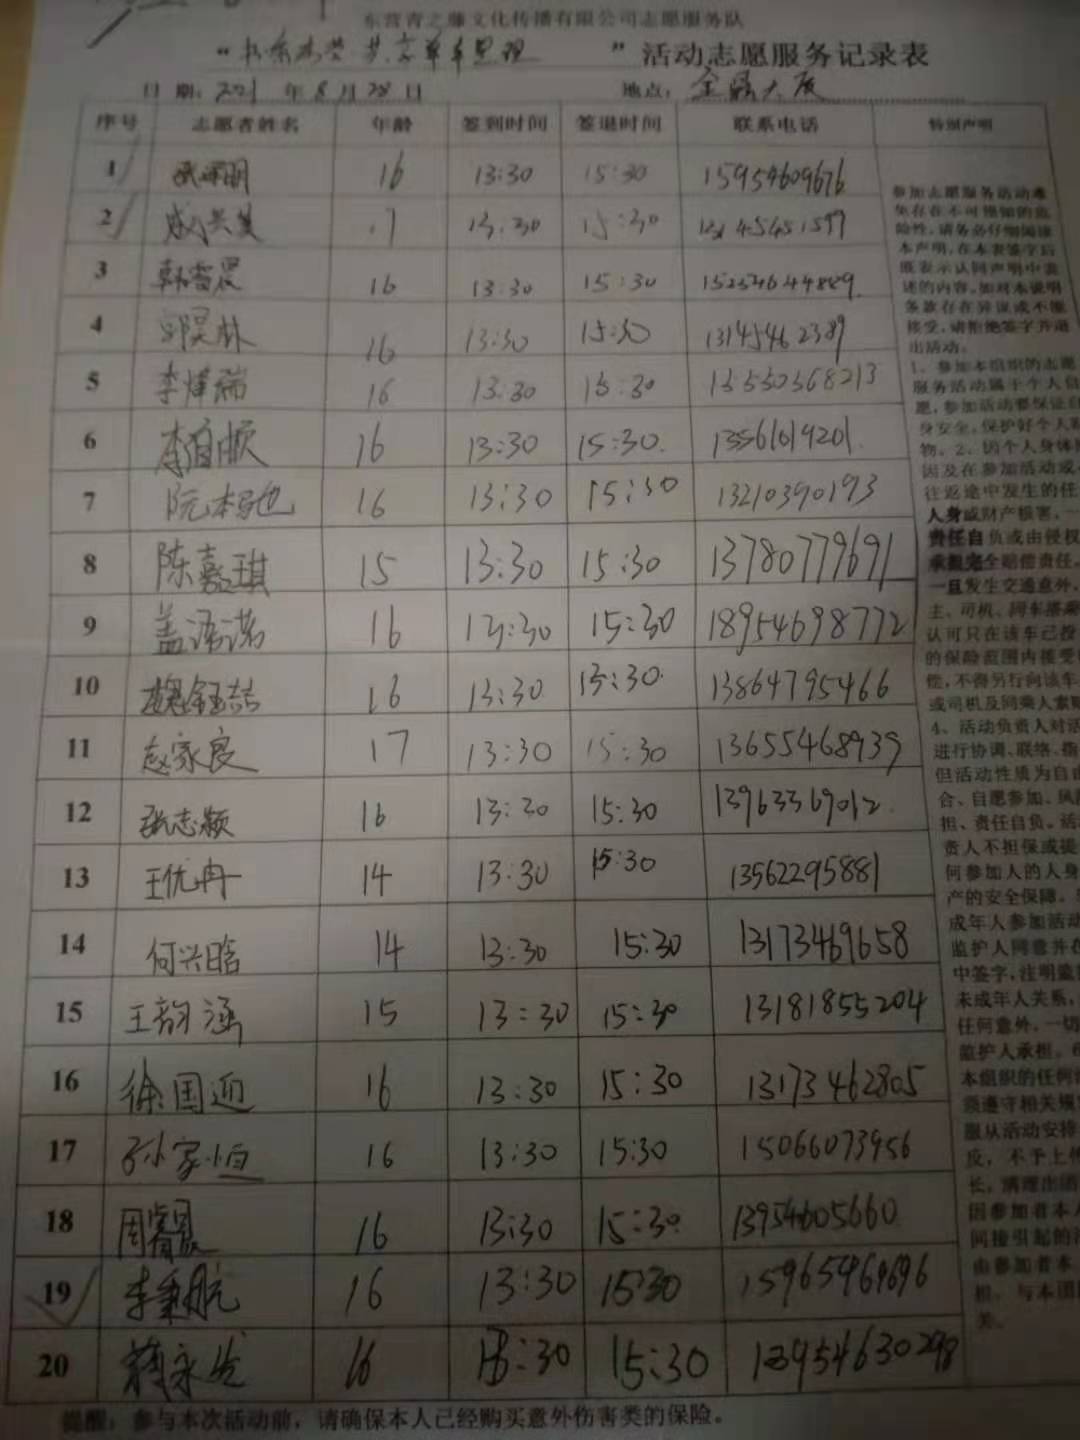 东营青之藤文化传播有限公司志愿服务队
” 活动志愿服务记录表
日 期: 2021 年 8 月 28 日 地点: 金融大厦
序号 志愿者姓名 年龄 签到时间 签退时间 联系电话 特别声明
1 16 13:30 15:30 15954609676
2 13:30 15:30
3 韩睿晨 16 13:30 15:30 152554644889
4 郭昊林 16 13:30 15:30 13145462389
5 李烽瑞 16 13:30 15:30
6 李 顺 16 13:30 15:30 13561019201
7 阮本驰 16 13:30 15:30 13210390193
8 陈嘉琪 15 13:30 15:30 13780779691
9 盖语诺 16 13:30 15:30 18954698772
10 魏钰喆 16 13:30 15:30 13864795466
11 赵家良 17 13:30 15:30 13655468939
12 张志颖 16 13:30 15:30 13963369012
13 王优冉 14 13:30 15:30 13562295881
14 何兴晗 14 13:30 15:30 13173469658
15 王韵涵 15 13:30 15:30 13181855204
16 徐国迎 16 13:30 15:30 13173462805
17 孙家恒 16 13:30 15:30 15066073956
18 周睿晨 16 13:30 15:30 13954605660
19 李秉航 16 13:30 15:30 15965969696
20 16 13:30 15:30
参加志愿服务活动难
免存在不可预知的危
险性,请务必仔细阅读
本声明,在本表签字后
既表示认同声明中表
述的内容,如对本说明
条款存在异议或不能
接受,请拒绝签字并退
出活动。
1、参加本组织的志愿
服务活动属于个人自
愿,参加活动要保证自
身安全,保护好个人财
物。2、因个人身体
因及在参加活动或
往返途中发生的任
人身或财产损害,一
责任自负或由侵权
承担完全赔偿责任。
一旦发生交通意外,
主、司机、同车搭乘
认可只在该车已投
的保险范围内接受
偿,不得另行向该车
或司机及同乘人索赔
4、活动负责人对活
进行协调、联络、指
但活动性质为自由
合、自愿参加、风险
担、责任自负。活
责人不担保或提
何参加人的人身
产的安全保障。
成年人参加活动
监护人同意并在
中签字,注明监
未成年人关系,
任何意外,一切
监护人承担。6
本组织的任何
须遵守相关规
服从活动安排
反,不予上传
长,清理出团
因参加者本人
间接引起的
由参加者本
担,与本团
关。
提醒:参与本次活动前,请确保本人已经购买意外伤害类的保险。